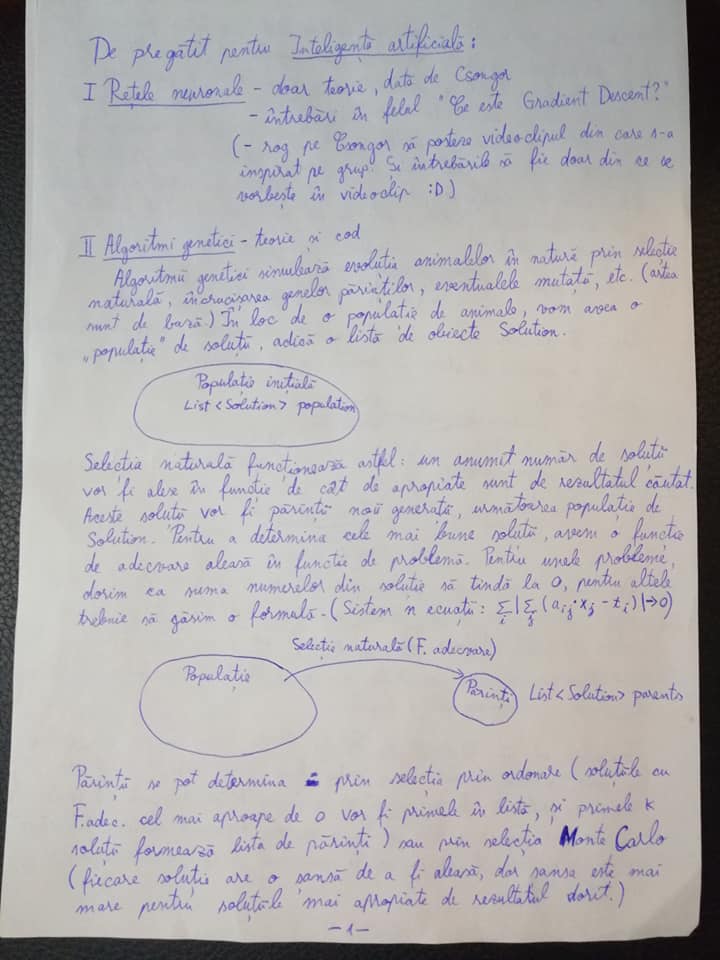 De pregătit pentru Inteligență artificială:
I Rețele neuronale - doar teorie, dată de Csongor
- întrebări în felul "Ce este Gradient Descent?"
(- rog pe Csongor să posteze videoclipul din care s-a
inspirat pe grup. Și întrebările să fie doar din ce se
vorbește în videoclip :D)
II Algoritmi genetici - teorie și cod
Algoritmii genetici simulează evoluția animalelor în natură prin selecție
naturală, încrucișarea genelor părinților, eventualele mutații, etc. (astea
sunt de bază.) În loc de o populație de animale, vom avea o
„populație" de soluții, adică o listă de obiecte Solution.
Populație inițială
List<Solution> population
Selecția naturală funcționează astfel: un anumit număr de soluții
vor fi alese în funcție de cât de apropiate sunt de rezultatul căutat.
Aceste soluții vor fi părinții noii generații, următoarea populație de
Solution. Pentru a determina cele mai bune soluții, avem o funcție
de adecvare aleasă în funcție de problemă. Pentru unele probleme,
dorim ca suma numerelor din soluție să tindă la 0, pentru altele
trebuie să găsim o formulă. (Sistem n ecuații: ∑i |∑j (aij·xj - ti)| → 0)
Selecție naturală (F. adecvare)
Populație
Părinți List<Solution> parents
Părinții se pot determina prin selecția prin ordonare (soluțiile cu
F.adec. cel mai aproape de 0 vor fi primele în listă, și primele k
soluții formează lista de părinți) sau prin selecția Monte Carlo
(fiecare soluție are o șansă de a fi aleasă, dar șansa este mai
mare pentru soluțiile mai apropiate de rezultatul dorit.)
-1-